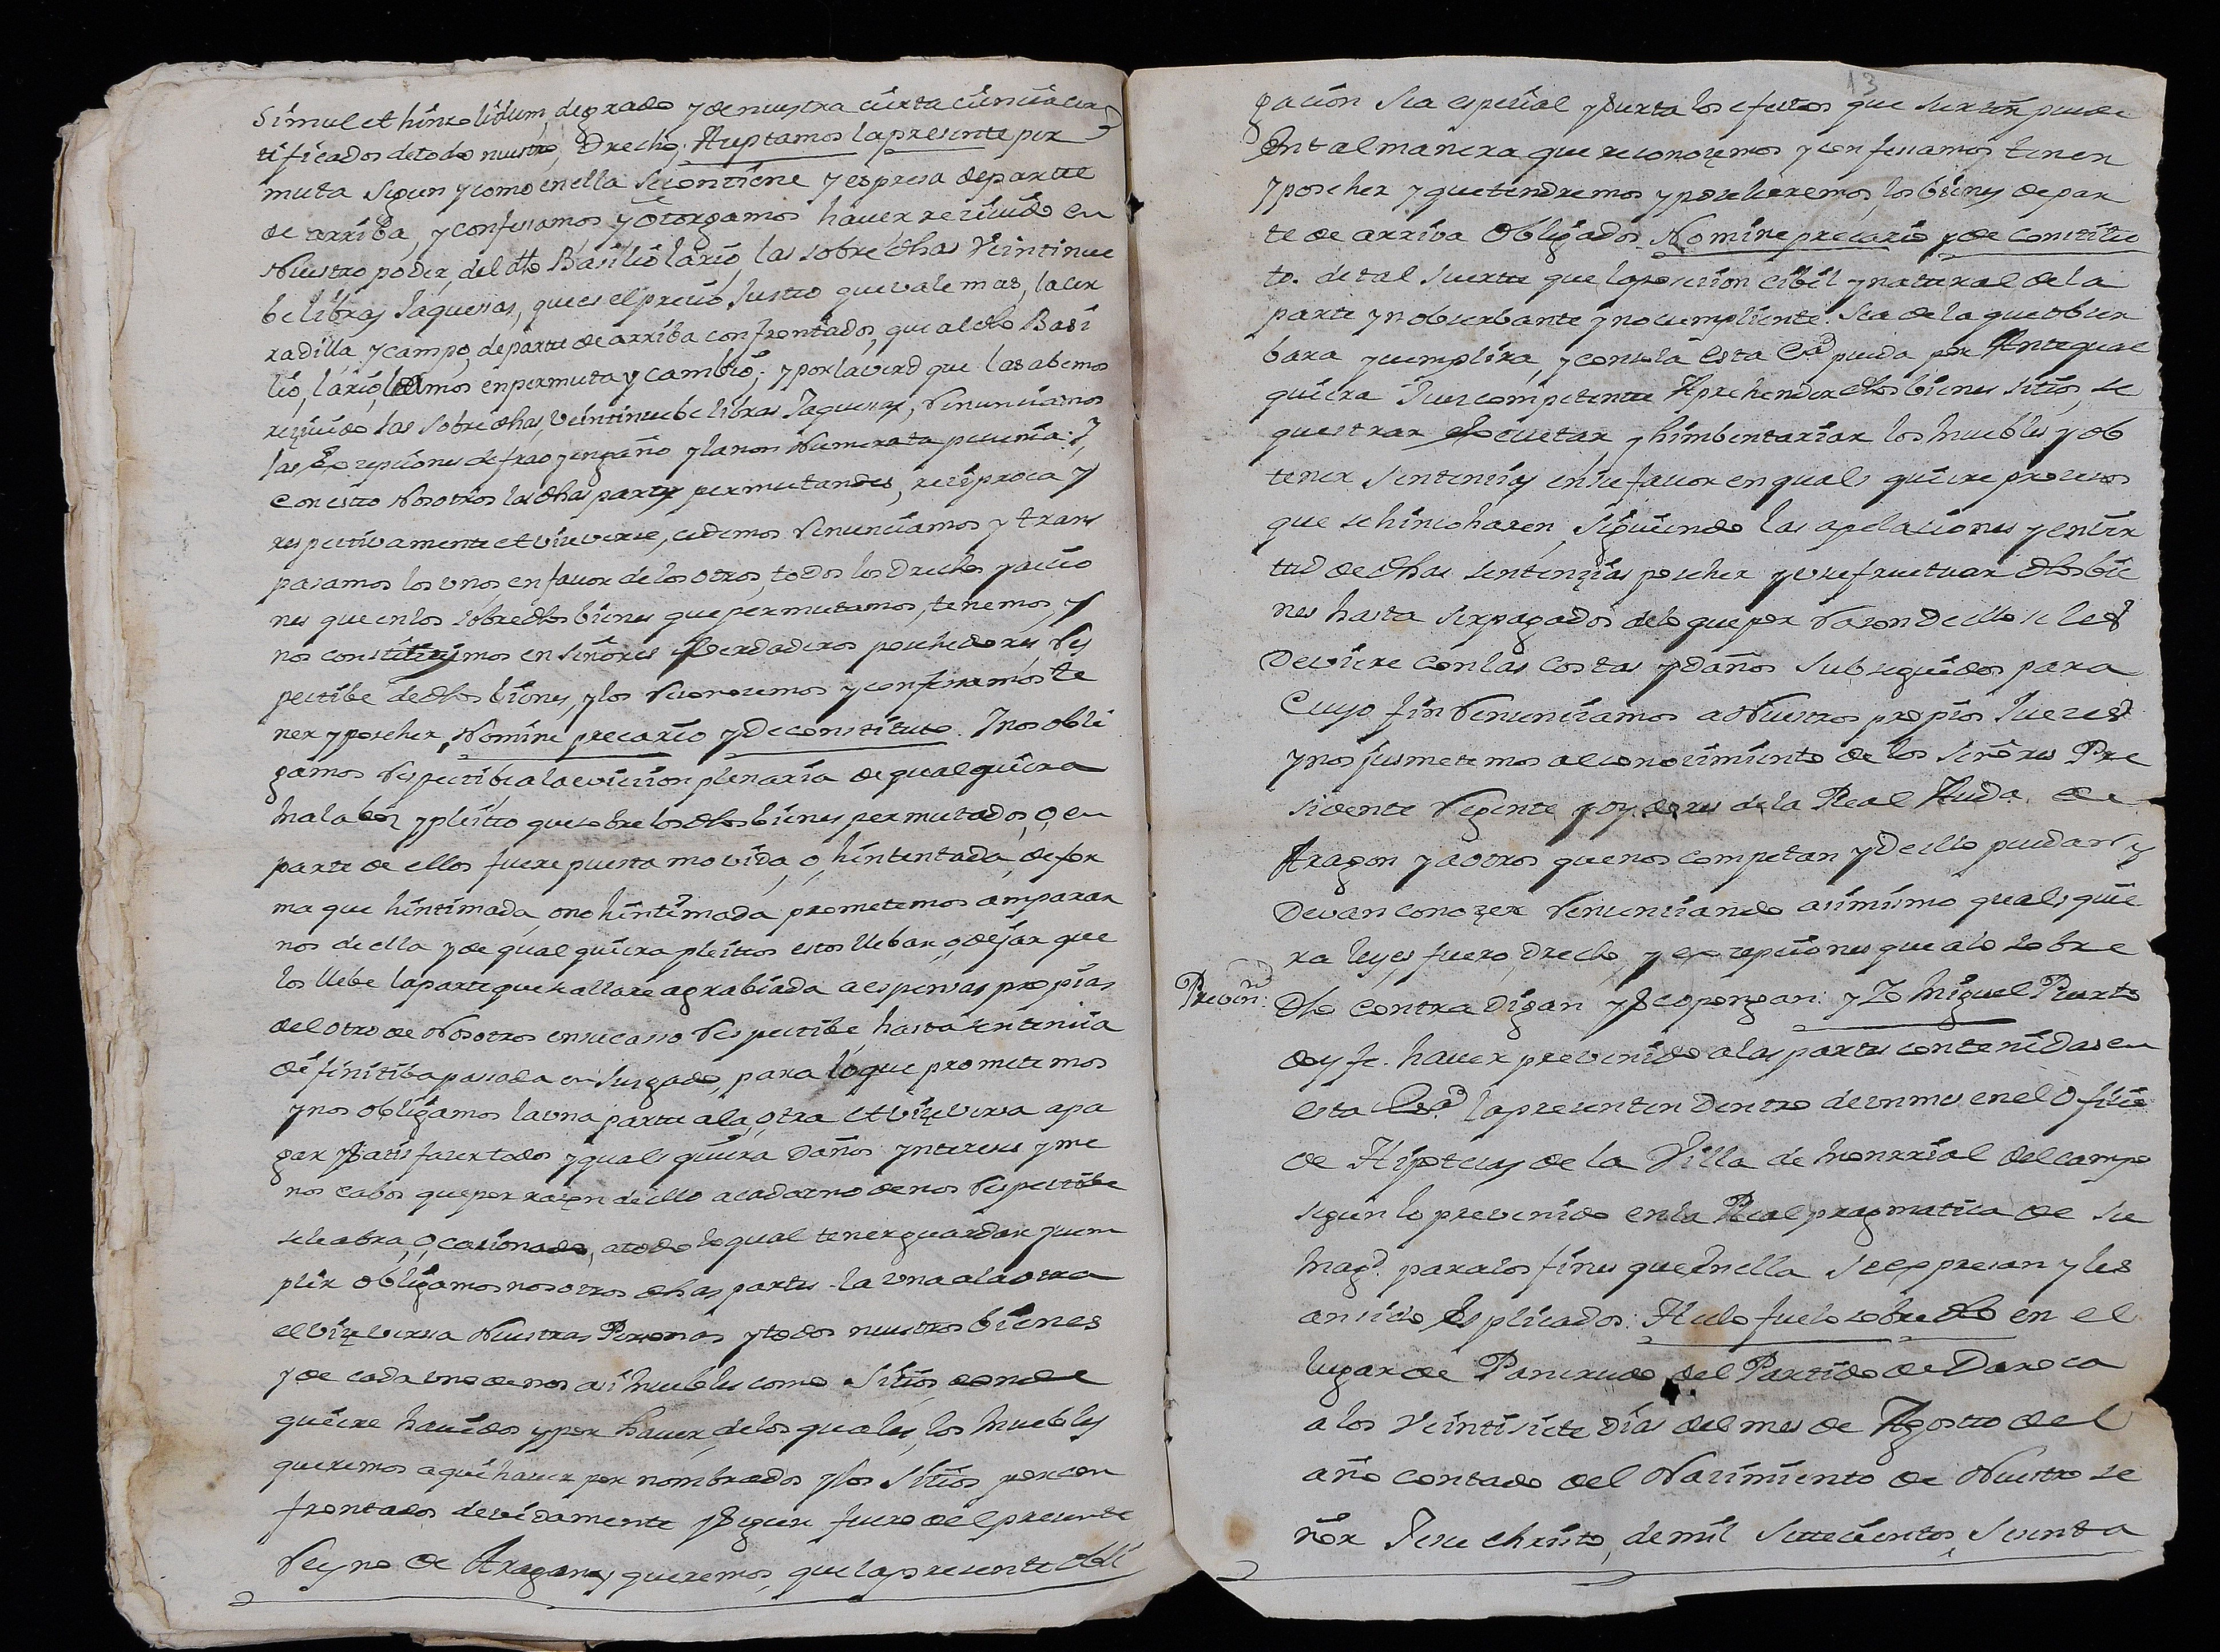 Simul et hinsolidum, de grado y de nuestra cierta ciencia cer
tificados de todo nuestro, Drecho; Aceptamos la presente per
muta segun y como en ella se contiene y espresa de parte
de arriba, y confesamos y Otorgamos haver recivido en
Nuestro poder, del dho Basilio lario, las sobre dhas Veintinue
be libras Jaquesas, que es el precio Justo que vale mas, la cer
radilla, y campo, de parte de arriba confrontados, que al dho Basi
lio, lario, damos en permuta y cambio; y por la verd que las abemos
recivido las sobre dhas, veintinuebe libras Jaquesas, Renunciamos
las Excepciones de frao y engaño y la non Numerata pecunia: Y,
con esto Nosotros las dhas partes permutandes, reciproca y
respectivamente et viceverse, cedemos Renunciamos y trans
pasamos los unos, en favor de los otros, todos los Drechos y accio
nes que en los sobredhos bienes que permutamos, tenemos, y
nos constituimos en señores Verdaderos poschedores Res
pectibe de dhos bienes, y los Reconocemos y confesamos te
ner y poscher, Nomine precario y De constituto. Y nos obli
gamos Respectibe a la eviccion plenaria de qualquiera
mala voz y pleitto que sobre los dhos bienes permutados, o, en
parte de ellos fuere puesta movida, o, hintentada, de for
ma que hintimada, o no hintimada, prometemos amparar
nos de ella y de qualquiera pleittos estos llebar, o, dejar que
los llebe la parte que se allare agrabiada a espensas propias
del otro de Nosotros en su casso Respectibe, hasta sentencia
difinitiba pasada en Juzgado, para lo que prometemos
y nos obligamos la una parte a la, otra et vizeversa apa
gar y satisfacer todos y quales quiera Daños yntereses y me
nos cabos que por razon de ello a cada uno de nos Respectibe
se le abra, Ocasionado, a todo lo qual tener guardar y cum
plir obligamos nosotros dhas partes la una a la otra
et vizeversa Nuestras Personas y todos nuestros bienes
y de cada uno de nos asi muebles como Sitios donde
quiere havidos y por haver, de los quales, los muebles
queremos aqui haver por nombrados y los sitios por con
frontados devidamente y segun fuero del presente
Reyno de Aragon, y queremos, que la presente obli
13
gacion sea especial y surta los efectos que surtir puede
En tal manera que reconozemos y confesamos tener
y poscher y que tendremos y poscheremos, los bienes de par
te de arriva Obligados. Nomine precario y de constitu
to. de tal suerte que la posecion cibil y natural de la
parte ynobserbante y no cumpliente. Sea de la que obser
bara y cumplira, y con sola esta Esra pueda por Ante qual
quiera Juez competente Aprehender dhos bienes sitios, se
questrar Executar, y himbentariar los muebles y ob
tener sentencias en su favor en quales quiere procesos
que se hincoharen, siguiendo las apelaciones y en vir
tud de dhas sentenzias poscher y usefructuar dhos bie
nes hasta ser pagados de lo que por Razon De ello se les
Deviere con las costas y daños subseguidos para
Cuyo fin Renunciamos a Nuestros propios Jueces
y nos jusmetemos al conocimiento de los Señores Pre
sidente Regente y oydores de la Real Auda. de
Aragon y a otros que nos competan y De ello puedan y
Devan conozer Renunciando asimismo quales quie
ra leyes, fuero, Drecho, y excepciones que a lo sobre
Prevenn:
Dho contra Digan y se opongan: y Yo Miguel Puerto
doy fe. haver prevenido a las partes contenidas en
esta Esra la presenten Dentro de un mes en el Oficio
de Hipotecas de la Villa de Monrrial del campo
segun lo prevenido en la Real pragmatica de su
Magd. para los fines que en ella se expresan y les
an sido Esplicados: Hecho fue lo sobre dho en el
lugar de Pancrudo del Partido de Daroca
a los Veintisiete Dias del mes de Agosto del
año contado del Nacimiento de Nuestro Se
ñor Jesu christo, de mil Settecientos, Setenta